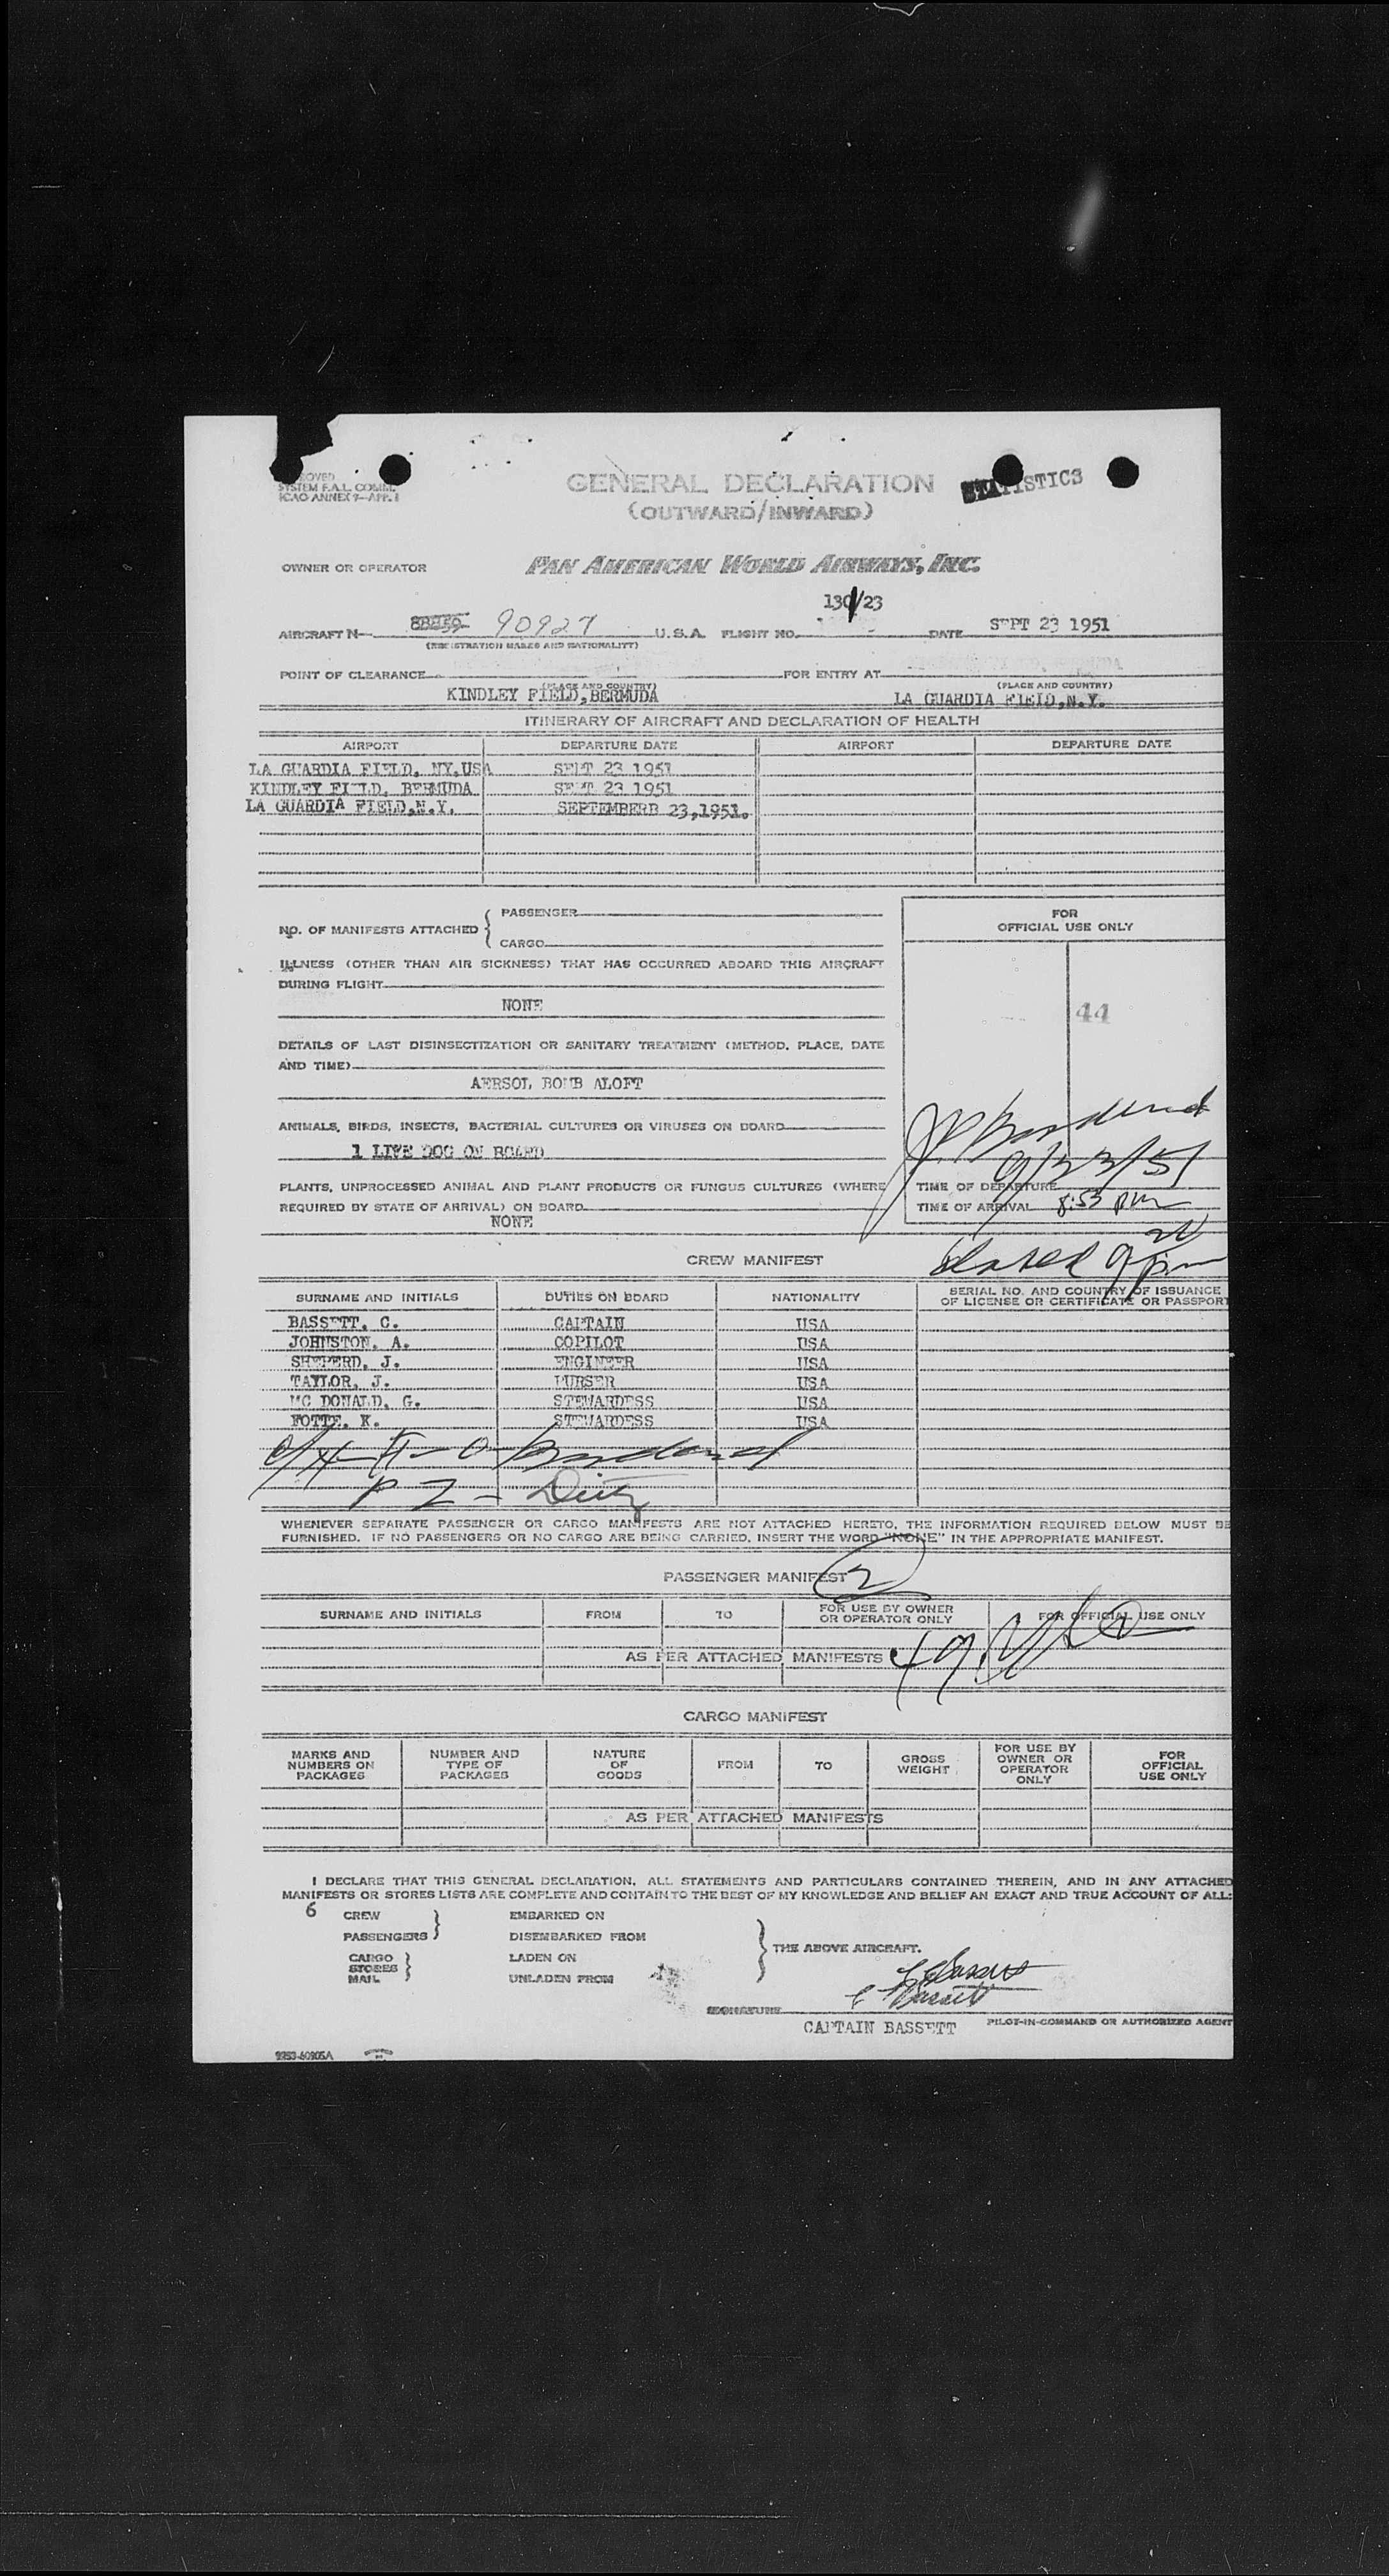 SYSTEM F.A.L. COMM.
ICAO ANNEX 9—APP. I
GENERAL DECLARATION
STATISTICS
(OUTWARD/INWARD)
OWNER OR OPERATOR PAN AMERICAN WORLD AIRWAYS, INC.
AIRCRAFT N 90927 U.S.A. FLIGHT NO. 130/23 DATE SEPT 23 1951
(REGISTRATION MARKS AND NATIONALITY)
POINT OF CLEARANCE FOR ENTRY AT
(PLACE AND COUNTRY) (PLACE AND COUNTRY)
KINDLEY FIELD,BERMUDA LA GUARDIA FIELD,N.Y.
ITINERARY OF AIRCRAFT AND DECLARATION OF HEALTH
AIRPORT DEPARTURE DATE AIRPORT DEPARTURE DATE
LA GUARDIA FIELD, NY,USA SEPT 23 1951
KINDLEY FIELD, BERMUDA SEPT 23 1951
LA GUARDIA FIELD,N.Y. SEPTEMBERB 23,1951.
NO. OF MANIFESTS ATTACHED PASSENGER
CARGO
FOR
OFFICIAL USE ONLY
ILLNESS (OTHER THAN AIR SICKNESS) THAT HAS OCCURRED ABOARD THIS AIRCRAFT
DURING FLIGHT
NONE
44
DETAILS OF LAST DISINSECTIZATION OR SANITARY TREATMENT (METHOD, PLACE, DATE
AND TIME)
AERSOL BOMB ALOFT
ANIMALS, BIRDS, INSECTS, BACTERIAL CULTURES OR VIRUSES ON BOARD
1 LIVE DOG ON BOARD
9/23/51
PLANTS, UNPROCESSED ANIMAL AND PLANT PRODUCTS OR FUNGUS CULTURES (WHERE
REQUIRED BY STATE OF ARRIVAL) ON BOARD
NONE
TIME OF DEPARTURE
TIME OF ARRIVAL 8:53 pm
CREW MANIFEST
SURNAME AND INITIALS DUTIES ON BOARD NATIONALITY SERIAL NO. AND COUNTRY OF ISSUANCE
OF LICENSE OR CERTIFICATE OR PASSPORT
BASSETT, C. CAPTAIN USA
JOHNSTON, A. COPILOT USA
SHEPERD, J. ENGINEER USA
TAYLOR, J. PURSER USA
MC DONALD, G. STEWARDESS USA
FOTTE, K. STEWARDESS USA
WHENEVER SEPARATE PASSENGER OR CARGO MANIFESTS ARE NOT ATTACHED HERETO, THE INFORMATION REQUIRED BELOW MUST BE
FURNISHED. IF NO PASSENGERS OR NO CARGO ARE BEING CARRIED, INSERT THE WORD "NONE" IN THE APPROPRIATE MANIFEST.
PASSENGER MANIFEST 2
SURNAME AND INITIALS FROM TO FOR USE BY OWNER
OR OPERATOR ONLY FOR OFFICIAL USE ONLY
AS PER ATTACHED MANIFESTS 49
CARGO MANIFEST
MARKS AND
NUMBERS ON
PACKAGES NUMBER AND
TYPE OF
PACKAGES NATURE
OF
GOODS FROM TO GROSS
WEIGHT FOR USE BY
OWNER OR
OPERATOR
ONLY FOR
OFFICIAL
USE ONLY
AS PER ATTACHED MANIFESTS
I DECLARE THAT THIS GENERAL DECLARATION, ALL STATEMENTS AND PARTICULARS CONTAINED THEREIN, AND IN ANY ATTACHED
MANIFESTS OR STORES LISTS ARE COMPLETE AND CONTAIN TO THE BEST OF MY KNOWLEDGE AND BELIEF AN EXACT AND TRUE ACCOUNT OF ALL:
6 CREW EMBARKED ON
PASSENGERS DISEMBARKED FROM
THE ABOVE AIRCRAFT.
CARGO LADEN ON
STORES
MAIL UNLADEN FROM
C Bassett
SIGNATURE
CAPTAIN BASSETT PILOT-IN-COMMAND OR AUTHORIZED AGENT